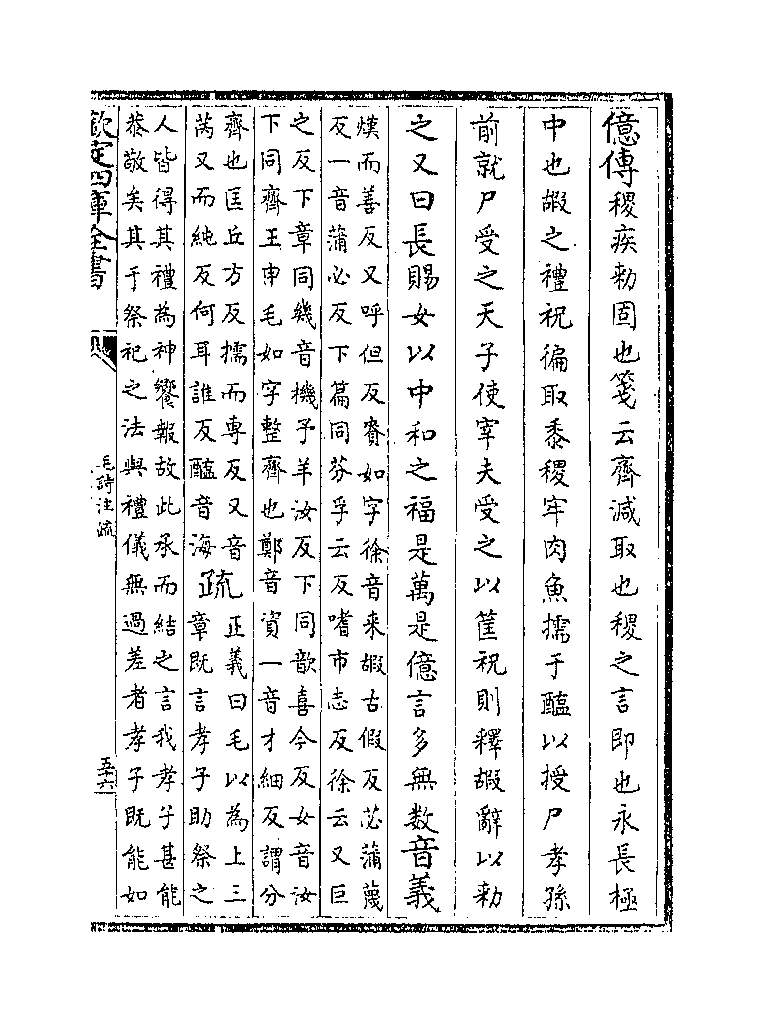 億傳稷疾勑固也箋云齊減取也稷之言即也永長極
中也嘏之禮祝徧取黍稷牢肉魚擩于醢以授尸孝孫
前就尸受之天子使宰夫受之以筐祝則釋嘏辭以勑
之又曰長賜女以中和之福是萬是億言多無數音義
熯而善反又呼但反賚如字徐音来嘏古假反苾蒲蔑
反一音蒲必反下篇同芬孚云反嗜市志反徐云又巨
之反下章同幾音機予羊汝反下同歆喜今反女音汝
下同齊王申毛如字整齊也鄭音資一音才細反謂分
齊也匡丘方反擩而専反又音
芮又而純反何耳誰反醢音海
疏
正義曰毛以為上三
章既言孝子助祭之
人皆得其禮為神饗報故此承而結之言我孝子甚能
恭敬矣其于祭祀之法與禮儀無過差者孝子既能如
欽定四庫全書
毛詩注疏
五十六